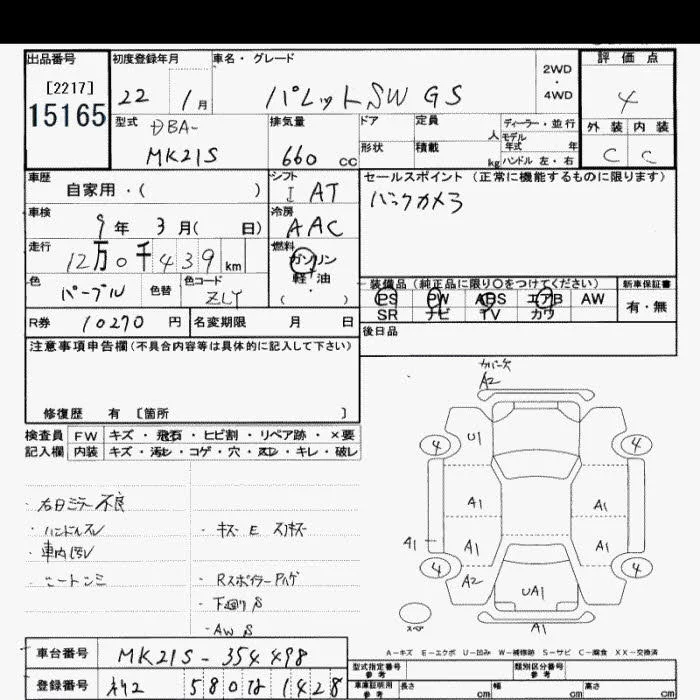 出品番号
[2217]
15165
初度登録年月
22 1月
車名・グレード
パレットSW GS
2WD
・
4WD
評価点
4
外装 内装
C C
型式
DBA-
MK21S
排気量
660 CC
ドア
定員 人
形状
積載 kg
ディーラー・並行
モデル
年式 年
ハンドル 左・右
車歴
自家用・( )
シフト
I AT
セールスポイント (正常に機能するものに限ります)
バックカメラ
車検
9年 3月( 日)
冷房
AAC
走行
12万0千439km
燃料
ガソリン
軽・油
( )
色
パープル
色替
色コード
ZLY
装備品(純正品に限り○をつけてください)
PS PW ABS エアB AW
SR ナビ TV カワ
新車保証書
有・無
R券 10270 円
名変期限 月 日
後日品
注意事項申告欄(不具合内容等は具体的に記入して下さい)
修復歴 有 [箇所 ]
検査員 FW キズ・飛石・ヒビ割・リペア跡・×要
記入欄 内装 キズ・汚レ・コゲ・穴・スレ・キレ・破レ
・右日ミラー不良
・ハンドルスレ
・車内汚レ
・シートシミ
・キズ E スリキズ
・Rスポイラー P ハゲ
・下廻りS
・AW S
カバー欠
A2
U1
4
4
A1
A1
A1
A1
A1
A2
4
4
UA1
A1
スペア
A-キズ E-エクボ U-凹み W-補修跡 S-サビ C-腐食 XX-交換済
車台番号
MK21S-354498
登録番号
580 1428
型式指定番号
参考
類別区分番号
参考
車庫証明用
参考
長さ cm
幅 cm
高さ cm